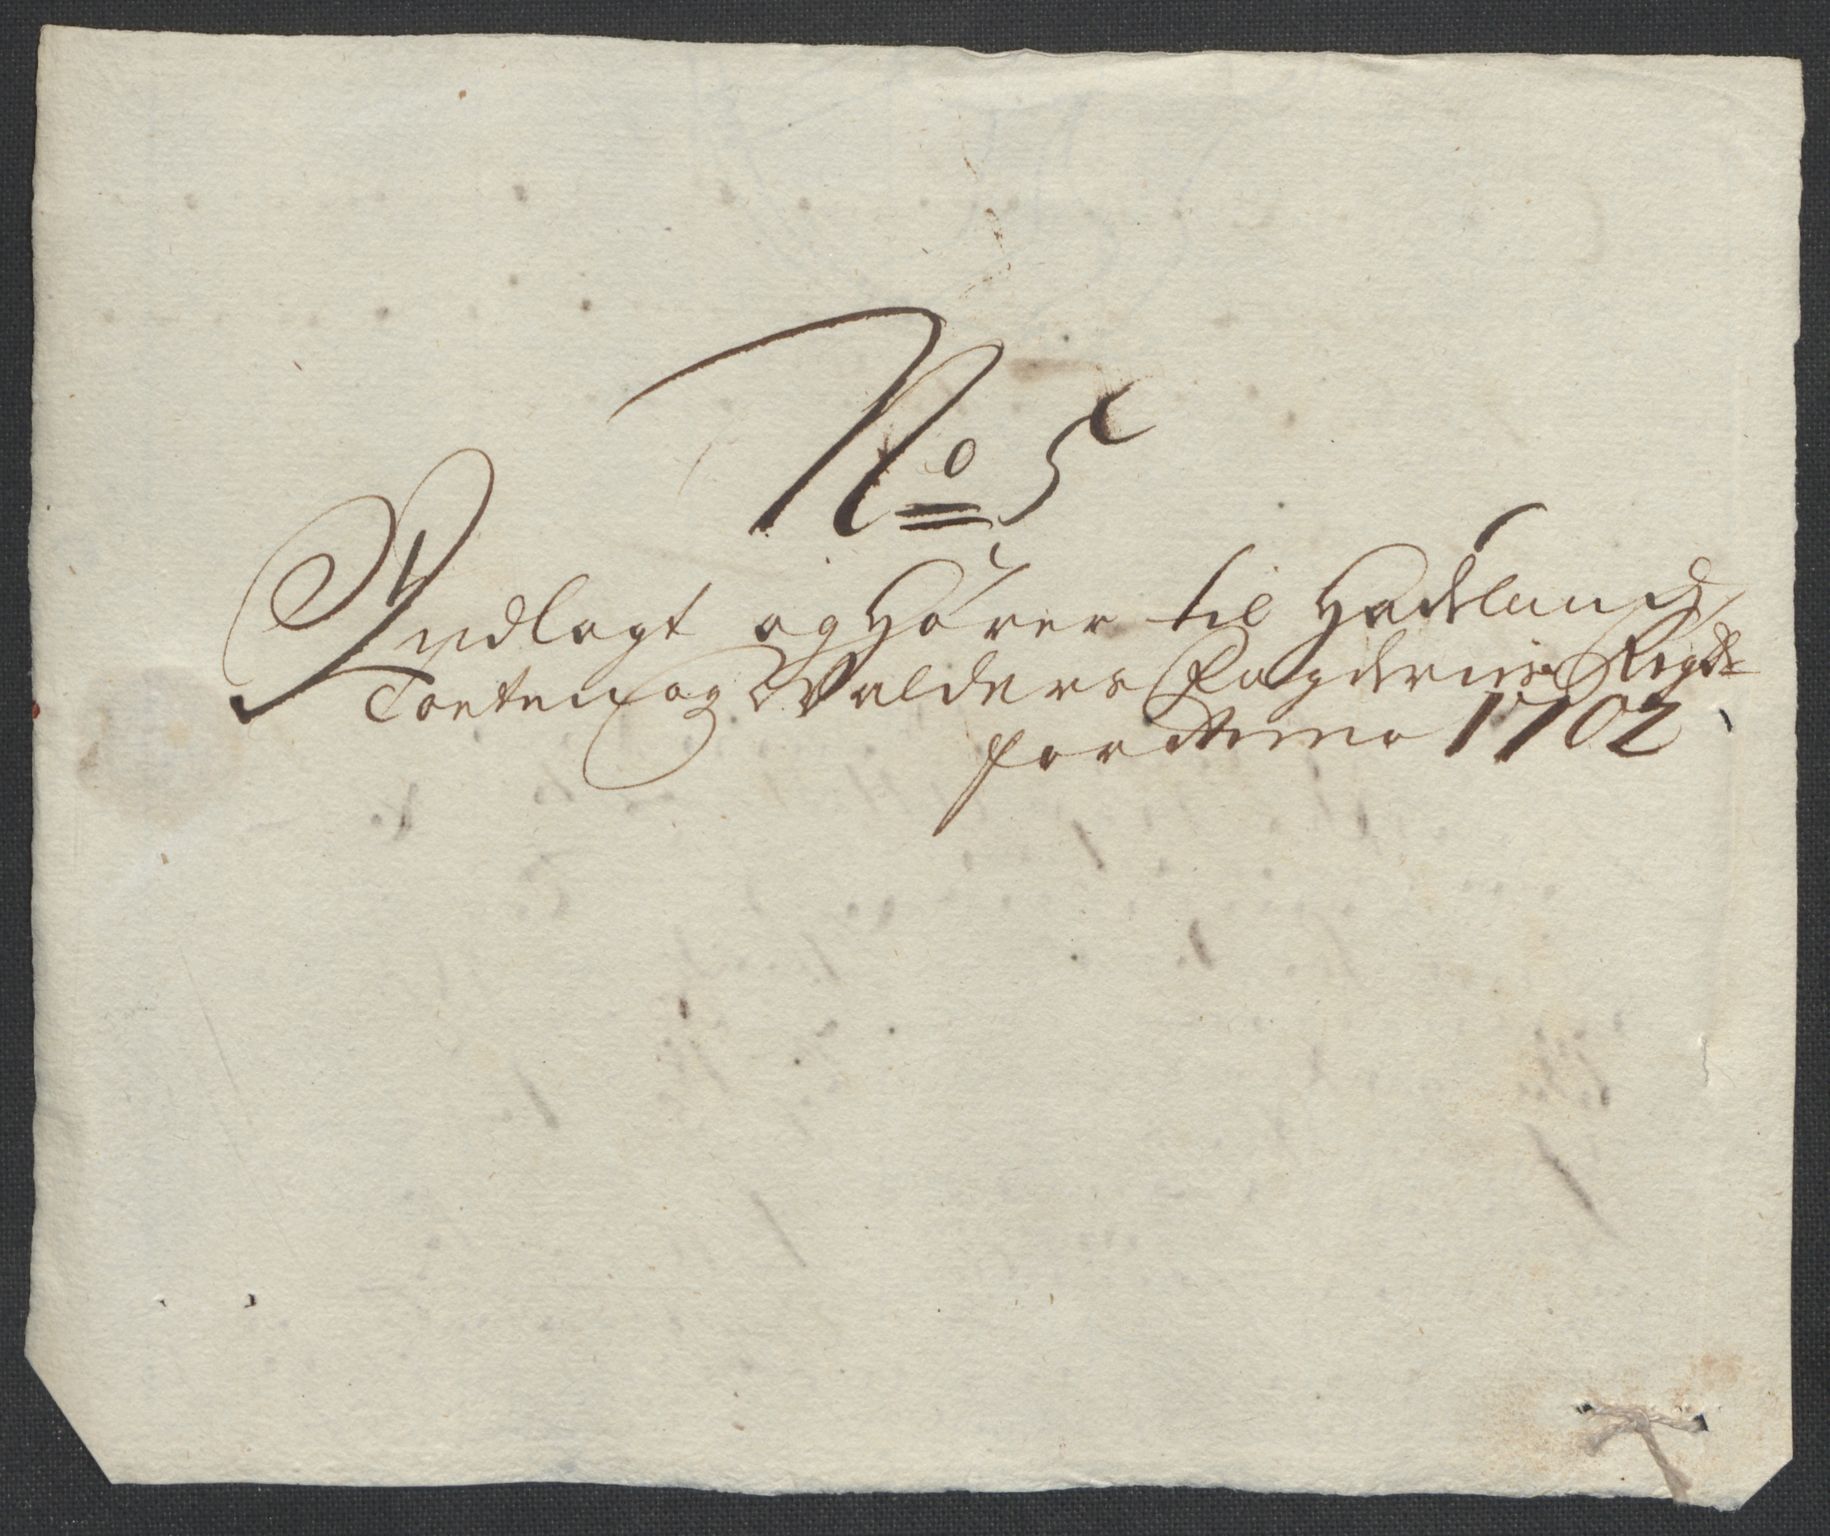 No 5
Indlagt og Hører til Hadeland,
Toeten og Walders Fogderies Regsk:
for Anno 1702